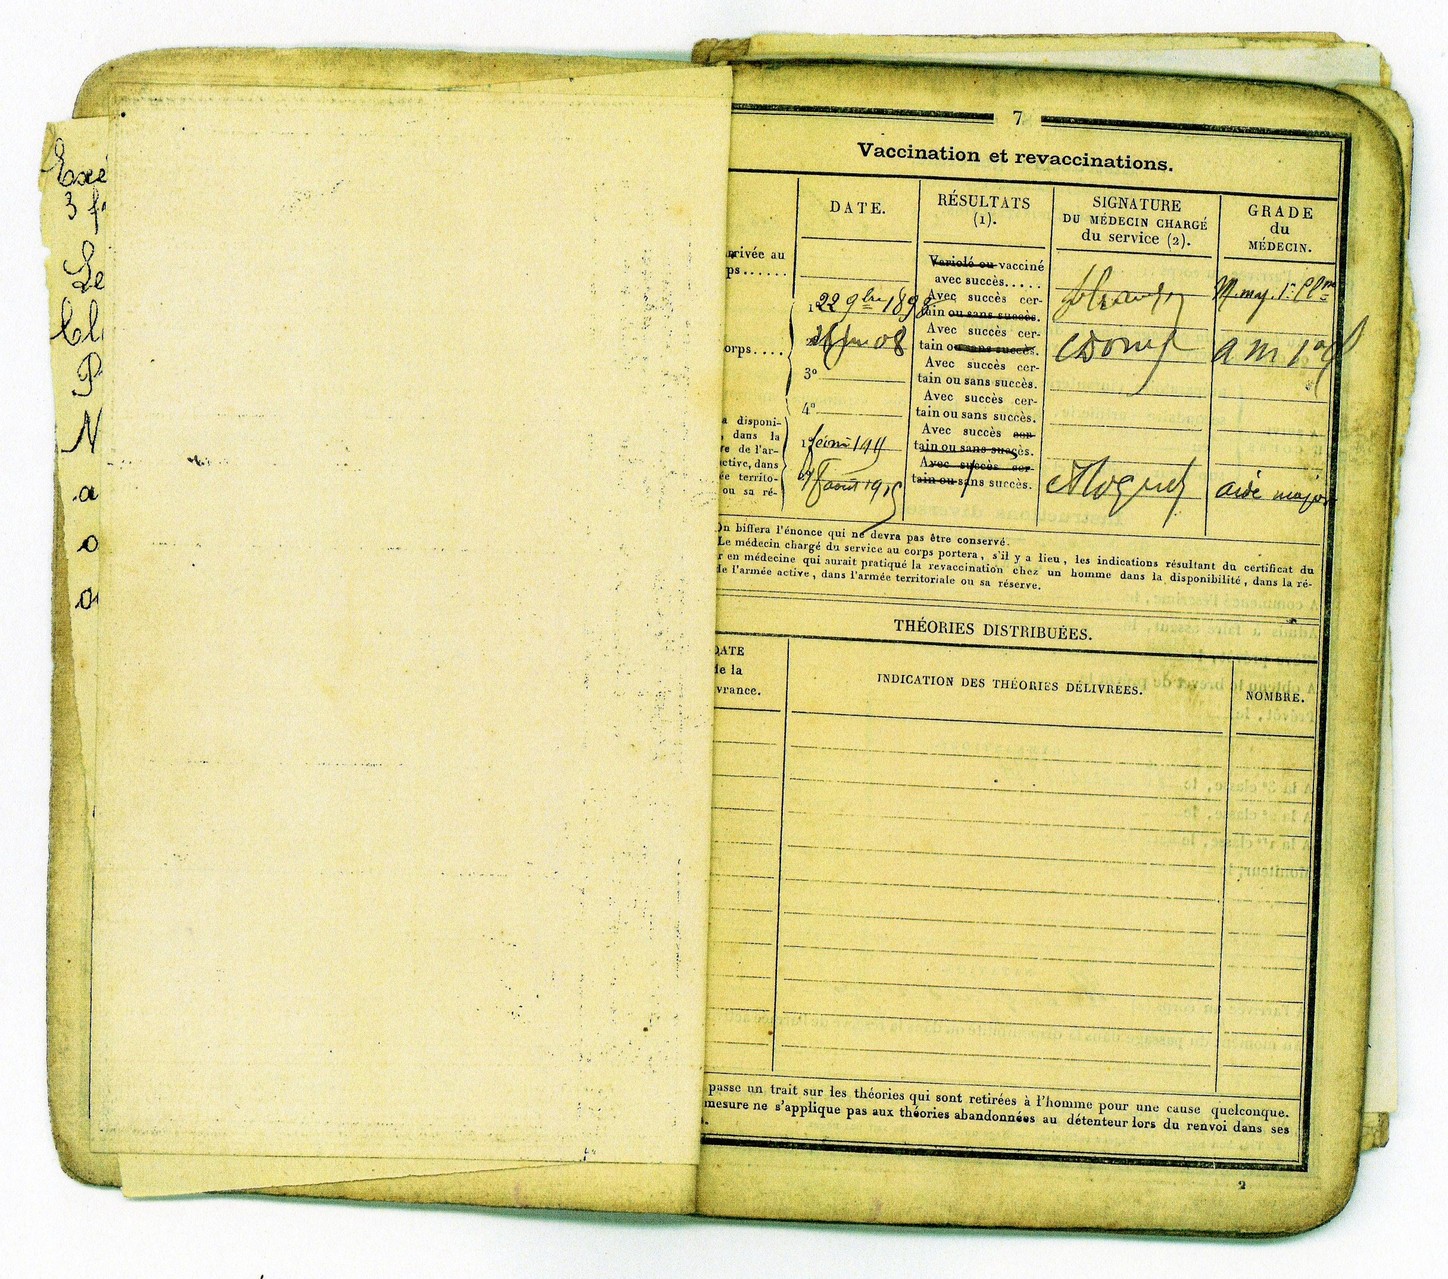 Exé
3 f
Le
Cl
P
N
a
o
7
Vaccination et revaccinations.
DATE.
RÉSULTATS
(1).
SIGNATURE
DU MÉDECIN CHARGÉ
du service (2).
GRADE
du
MÉDECIN.
rrivée au
ps......
Variolé ou vacciné
avec succès.....
1° 22 9bre 1898
Avec succès cer-
tain ou sans succès.
M. maj. 1e Clse
orps....
2° 08
Avec succès cer-
tain ou sans succès.
a m 1
3°
Avec succès cer-
tain ou sans succès.
4°
Avec succès cer-
tain ou sans succès.
a disponi-
, dans la
re de l'ar-
active, dans
ée territo-
ou sa ré-
1°
Avec succès cer-
tain ou sans succès.
août 1915
Avec succès cer-
tain ou sans succès.
aide major
On biffera l'énonce qui ne devra pas être conservé.
Le médecin chargé du service au corps portera, s'il y a lieu, les indications résultant du certificat du
r en médecine qui aurait pratiqué la revaccination chez un homme dans la disponibilité, dans la ré-
de l'armée active, dans l'armée territoriale ou sa réserve.
THÉORIES DISTRIBUÉES.
DATE
de la
vrance.
INDICATION DES THÉORIES DÉLIVRÉES.
NOMBRE.
passe un trait sur les théories qui sont retirées à l'homme pour une cause quelconque.
mesure ne s'applique pas aux théories abandonnées au détenteur lors du renvoi dans ses
2